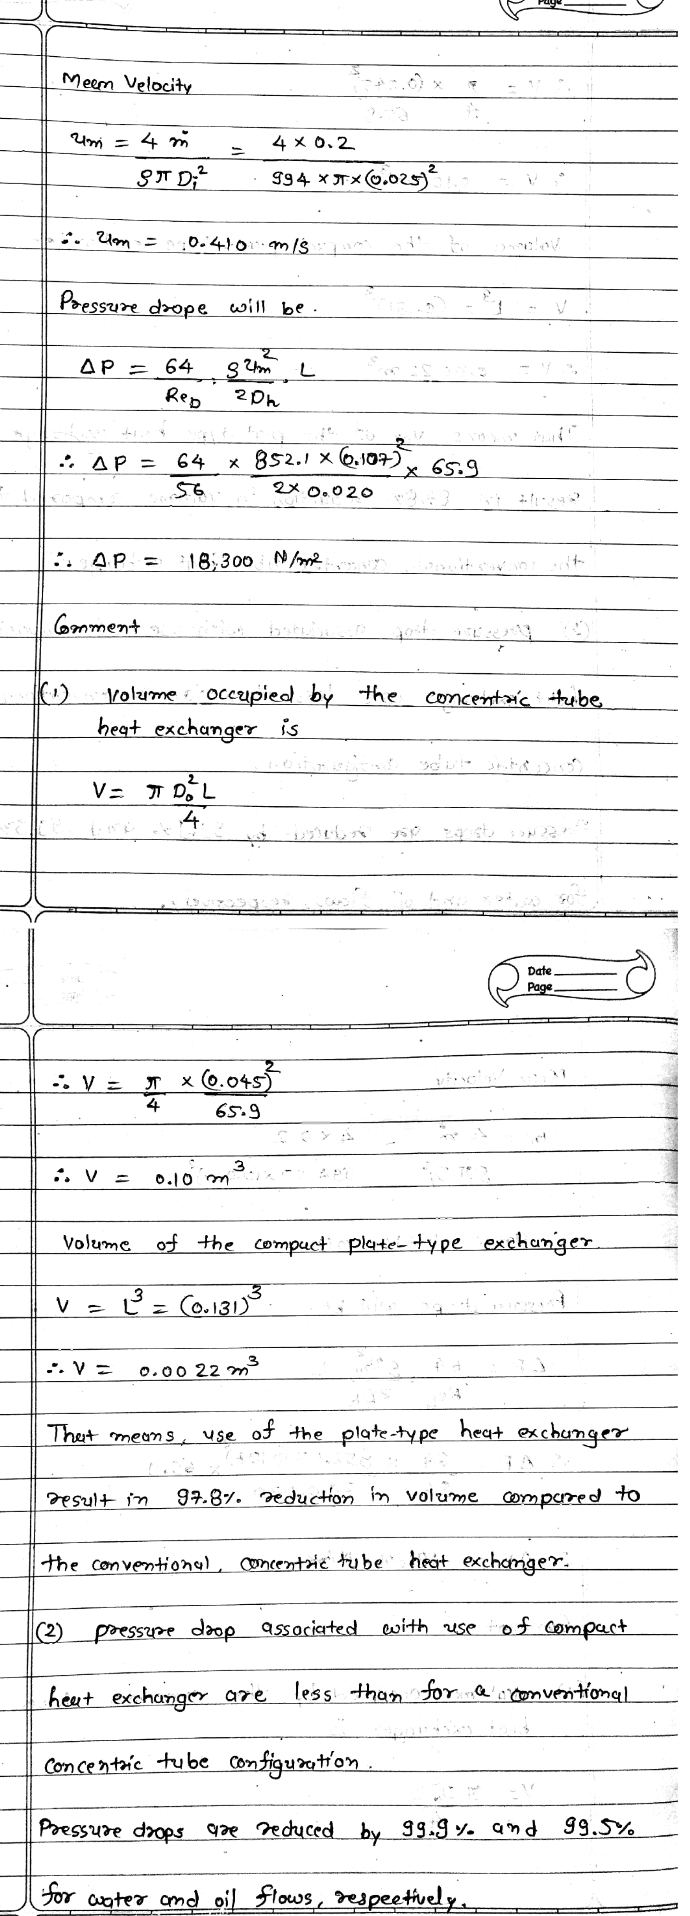 Page
Meem Velocity
um = 4 ṁ / ρπ Di² = 4 × 0.2 / 994 × π × (0.025)²
∴ um = 0.410 m/s
Pressure drope will be.
ΔP = 64 / ReD · ρ um² / 2Dh · L
∴ ΔP = 64 / 56 × 852.1 × (0.107)² / 2 × 0.020 × 65.9
∴ ΔP = 18,300 N/m²
Comment
(1) volume occupied by the concentric tube
heat exchanger is
V = π Do² L / 4
Date
Page
∴ V = π / 4 × (0.045)² / 65.9
∴ V = 0.10 m³
Volume of the compact plate-type exchanger
V = L³ = (0.131)³
∴ V = 0.0022 m³
That means, use of the plate-type heat exchanger
result in 97.8% reduction in volume compared to
the conventional, concentric tube heat exchanger.
(2) pressure drop associated with use of compact
heat exchanger are less than for a conventional
concentric tube configuration.
Pressure drops are reduced by 99.9% and 99.5%
for water and oil flows, respectively.